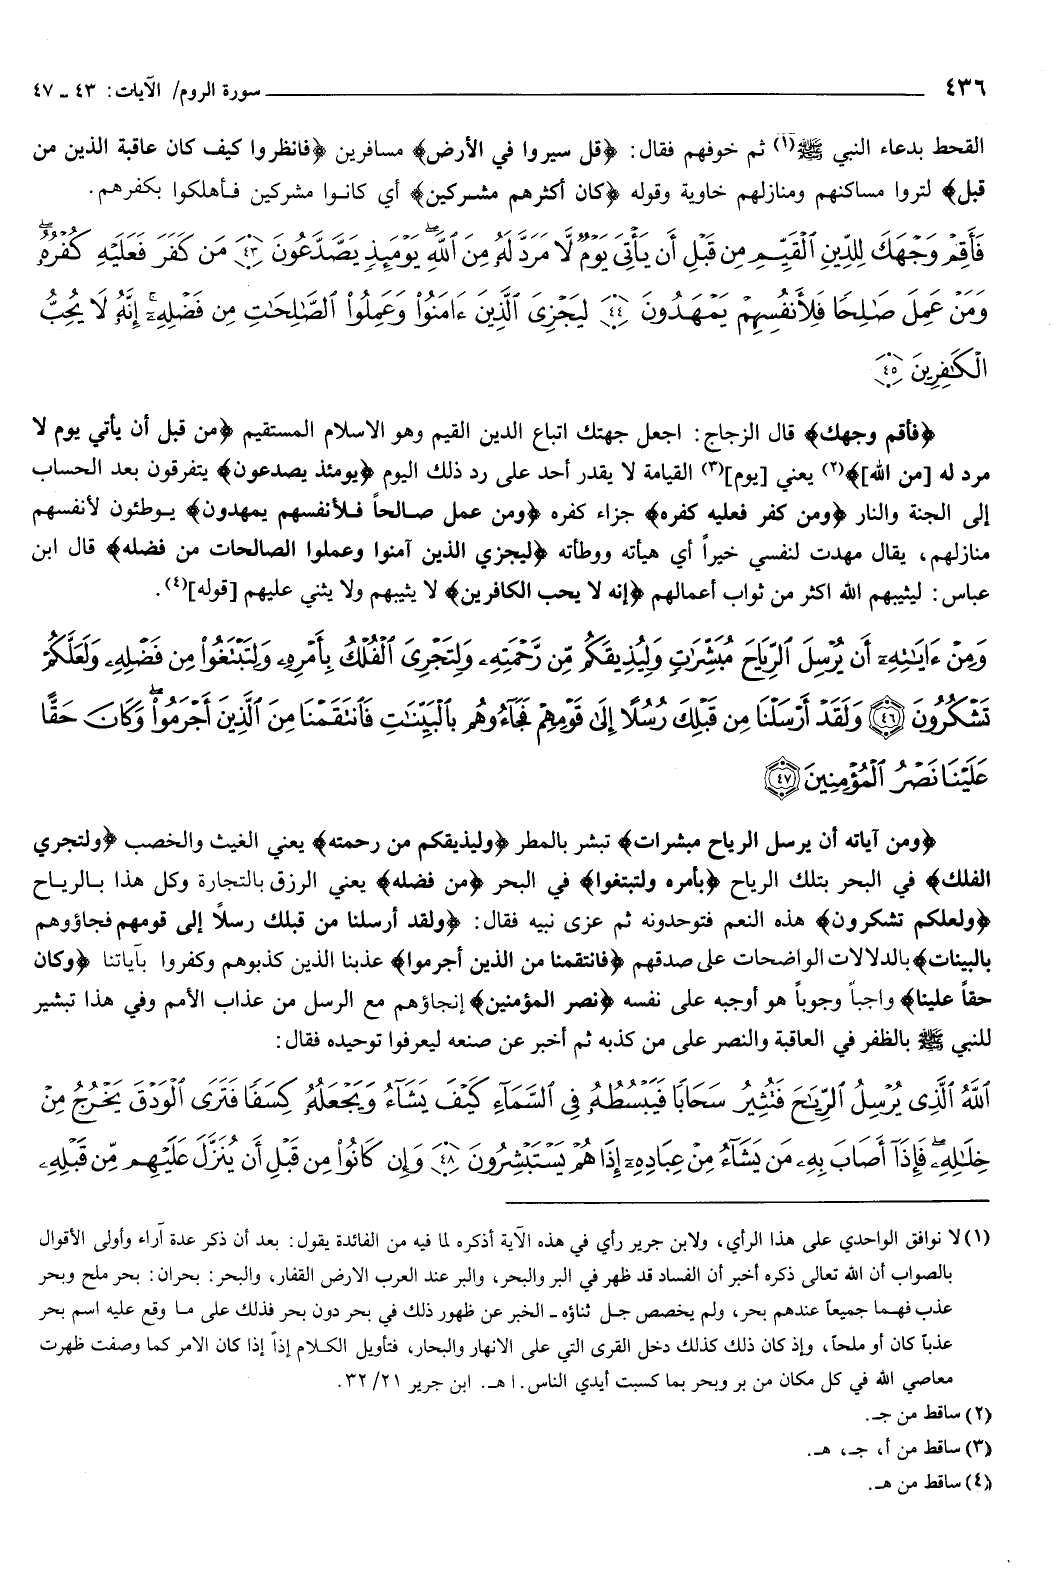 ٤٣٦ سورة الروم/ الآيات: ٤٣ ـ ٤٧
القحط بدعاء النبي ﷺ(١) ثم خوفهم فقال: ﴿قل سيروا في الأرض﴾ مسافرين ﴿فانظروا كيف كان عاقبة الذين من
قبل﴾ لتروا مساكنهم ومنازلهم خاوية وقوله ﴿كان أكثرهم مشركين﴾ أي كانوا مشركين فأهلكوا بكفرهم.
فَأَقِمْ وَجْهَكَ لِلدِّينِ ٱلْقَيِّمِ مِن قَبْلِ أَن يَأْتِىَ يَوْمٌ لَّا مَرَدَّ لَهُۥ مِنَ ٱللَّهِ ۖ يَوْمَئِذٍ يَصَّدَّعُونَ ٤٣ مَن كَفَرَ فَعَلَيْهِ كُفْرُهُۥ ۖ
وَمَنْ عَمِلَ صَٰلِحًا فَلِأَنفُسِهِمْ يَمْهَدُونَ ٤٤ لِيَجْزِىَ ٱلَّذِينَ ءَامَنُوا۟ وَعَمِلُوا۟ ٱلصَّٰلِحَٰتِ مِن فَضْلِهِۦٓ ۚ إِنَّهُۥ لَا يُحِبُّ
ٱلْكَٰفِرِينَ ٤٥
﴿فأقم وجهك﴾ قال الزجاج: اجعل جهتك اتباع الدين القيم وهو الاسلام المستقيم ﴿من قبل أن يأتي يوم لا
مرد له [من الله]﴾(٢) يعني [يوم](٣) القيامة لا يقدر أحد على رد ذلك اليوم ﴿يومئذ يصدعون﴾ يتفرقون بعد الحساب
إلى الجنة والنار ﴿ومن كفر فعليه كفره﴾ جزاء كفره ﴿ومن عمل صالحاً فلأنفسهم يمهدون﴾ يوطئون لأنفسهم
منازلهم، يقال مهدت لنفسي خيراً أي هيأته ووطأته ﴿ليجزي الذين آمنوا وعملوا الصالحات من فضله﴾ قال ابن
عباس: ليثيبهم الله اكثر من ثواب أعمالهم ﴿إنه لا يحب الكافرين﴾ لا يثيبهم ولا يثني عليهم [قوله](٤).
وَمِنْ ءَايَٰتِهِۦٓ أَن يُرْسِلَ ٱلرِّيَاحَ مُبَشِّرَٰتٍ وَلِيُذِيقَكُم مِّن رَّحْمَتِهِۦ وَلِتَجْرِىَ ٱلْفُلْكُ بِأَمْرِهِۦ وَلِتَبْتَغُوا۟ مِن فَضْلِهِۦ وَلَعَلَّكُمْ
تَشْكُرُونَ ٤٦ وَلَقَدْ أَرْسَلْنَا مِن قَبْلِكَ رُسُلًا إِلَىٰ قَوْمِهِمْ فَجَآءُوهُم بِٱلْبَيِّنَٰتِ فَٱنتَقَمْنَا مِنَ ٱلَّذِينَ أَجْرَمُوا۟ ۖ وَكَانَ حَقًّا
عَلَيْنَا نَصْرُ ٱلْمُؤْمِنِينَ ٤٧
﴿ومن آياته أن يرسل الرياح مبشرات﴾ تبشر بالمطر ﴿وليذيقكم من رحمته﴾ يعني الغيث والخصب ﴿ولتجري
الفلك﴾ في البحر بتلك الرياح ﴿بأمره ولتبتغوا﴾ في البحر ﴿من فضله﴾ يعني الرزق بالتجارة وكل هذا بالرياح
﴿ولعلكم تشكرون﴾ هذه النعم فتوحدونه ثم عزى نبيه فقال: ﴿ولقد أرسلنا من قبلك رسلاً إلى قومهم فجاؤوهم
بالبينات﴾ بالدلالات الواضحات على صدقهم ﴿فانتقمنا من الذين أجرموا﴾ عذبنا الذين كذبوهم وكفروا بآياتنا ﴿وكان
حقاً علينا﴾ واجباً وجوباً هو أوجبه على نفسه ﴿نصر المؤمنين﴾ إنجاؤهم مع الرسل من عذاب الأمم وفي هذا تبشير
للنبي ﷺ بالظفر في العاقبة والنصر على من كذبه ثم أخبر عن صنعه ليعرفوا توحيده فقال:
ٱللَّهُ ٱلَّذِى يُرْسِلُ ٱلرِّيَٰحَ فَتُثِيرُ سَحَابًا فَيَبْسُطُهُۥ فِى ٱلسَّمَآءِ كَيْفَ يَشَآءُ وَيَجْعَلُهُۥ كِسَفًا فَتَرَى ٱلْوَدْقَ يَخْرُجُ مِنْ
خِلَٰلِهِۦ ۖ فَإِذَآ أَصَابَ بِهِۦ مَن يَشَآءُ مِنْ عِبَادِهِۦٓ إِذَا هُمْ يَسْتَبْشِرُونَ ٤٨ وَإِن كَانُوا۟ مِن قَبْلِ أَن يُنَزَّلَ عَلَيْهِم مِّن قَبْلِهِۦ
(١) لا نوافق الواحدي على هذا الرأي، ولابن جرير رأي في هذه الآية أذكره لما فيه من الفائدة يقول: بعد أن ذكر عدة آراء وأولى الأقوال
بالصواب أن الله تعالى ذكره أخبر أن الفساد قد ظهر في البر والبحر، والبر عند العرب الارض القفار، والبحر: بحران: بحر ملح وبحر
عذب فهما جميعاً عندهم بحر، ولم يخصص جل ثناؤه ـ الخبر عن ظهور ذلك في بحر دون بحر فذلك على ما وقع عليه اسم بحر
عذباً كان أو ملحاً، وإذ كان ذلك كذلك دخل القرى التي على الانهار والبحار، فتأويل الكلام إذاً إذا كان الامر كما وصفت ظهرت
معاصي الله في كل مكان من بر وبحر بما كسبت أيدي الناس. ا هـ. ابن جرير ٢١/ ٣٢.
(٢) ساقط من جـ.
(٣) ساقط من أ، جـ، هـ.
(٤) ساقط من هـ.